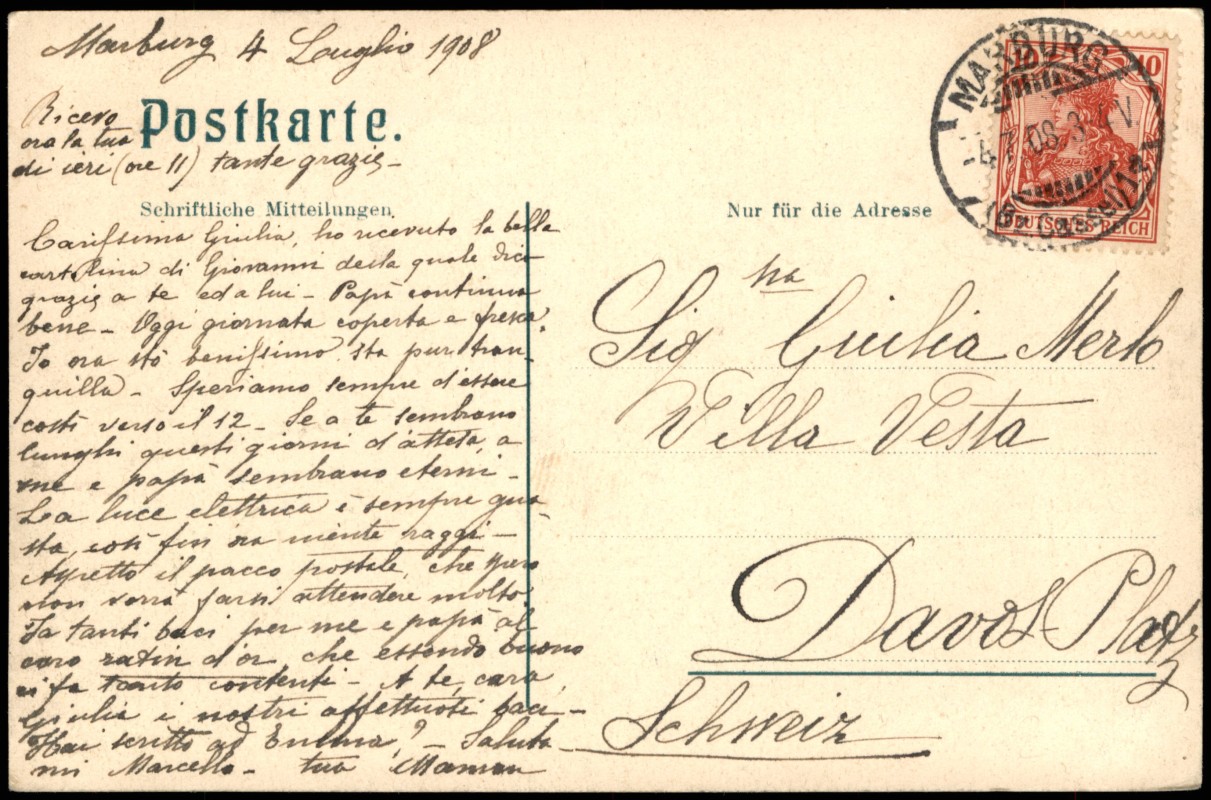 Marburg 4 Luglio 1908
Ricevo
ora la tua
di ieri (ore 11) tante grazie -
Postkarte.
Schriftliche Mitteilungen.
Carissima Giulia, ho ricevuto la bella
cartolina di Giovanni della quale dico
grazie a te ed a lui - Papà continua
bene - Oggi giornata coperta e fresca.
Io ora stò benissimo sta pur tran-
quilla - Speriamo sempre d'essere
costì verso il 12 - Se a te sembrano
lunghi questi giorni d'attesa, a
me e papà sembrano eterni -
La luce elettrica è sempre gua-
sta, così fin ora niente raggi -
Aspetto il pacco postale, che spero
non vorrà farsi attendere molto
Fa tanti baci per me e papà al
caro ratin d'or, che essendo buono
ci fa tanto contenti - A te, cara
Giulia i nostri affettuosi baci -
Hai scritto ad Emma? - Saluta-
mi Marcello - tua Maman
Nur für die Adresse
MARBURG
4.7.08.
10 10
DEUTSCHES REICH
Sig na Giulia Merlo
Villa Vesta
Davos-Platz
Schweiz